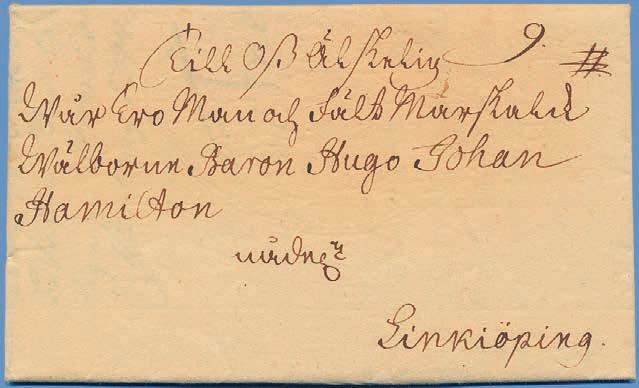 Till Oß Älskelig 9. #
Wår Tro Man och Fält Marskalck
Wälborne Baron Hugo Johan
Hamilton
Linkiöping.